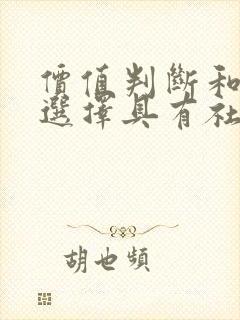 價值判斷和
選擇具有社
胡也頻